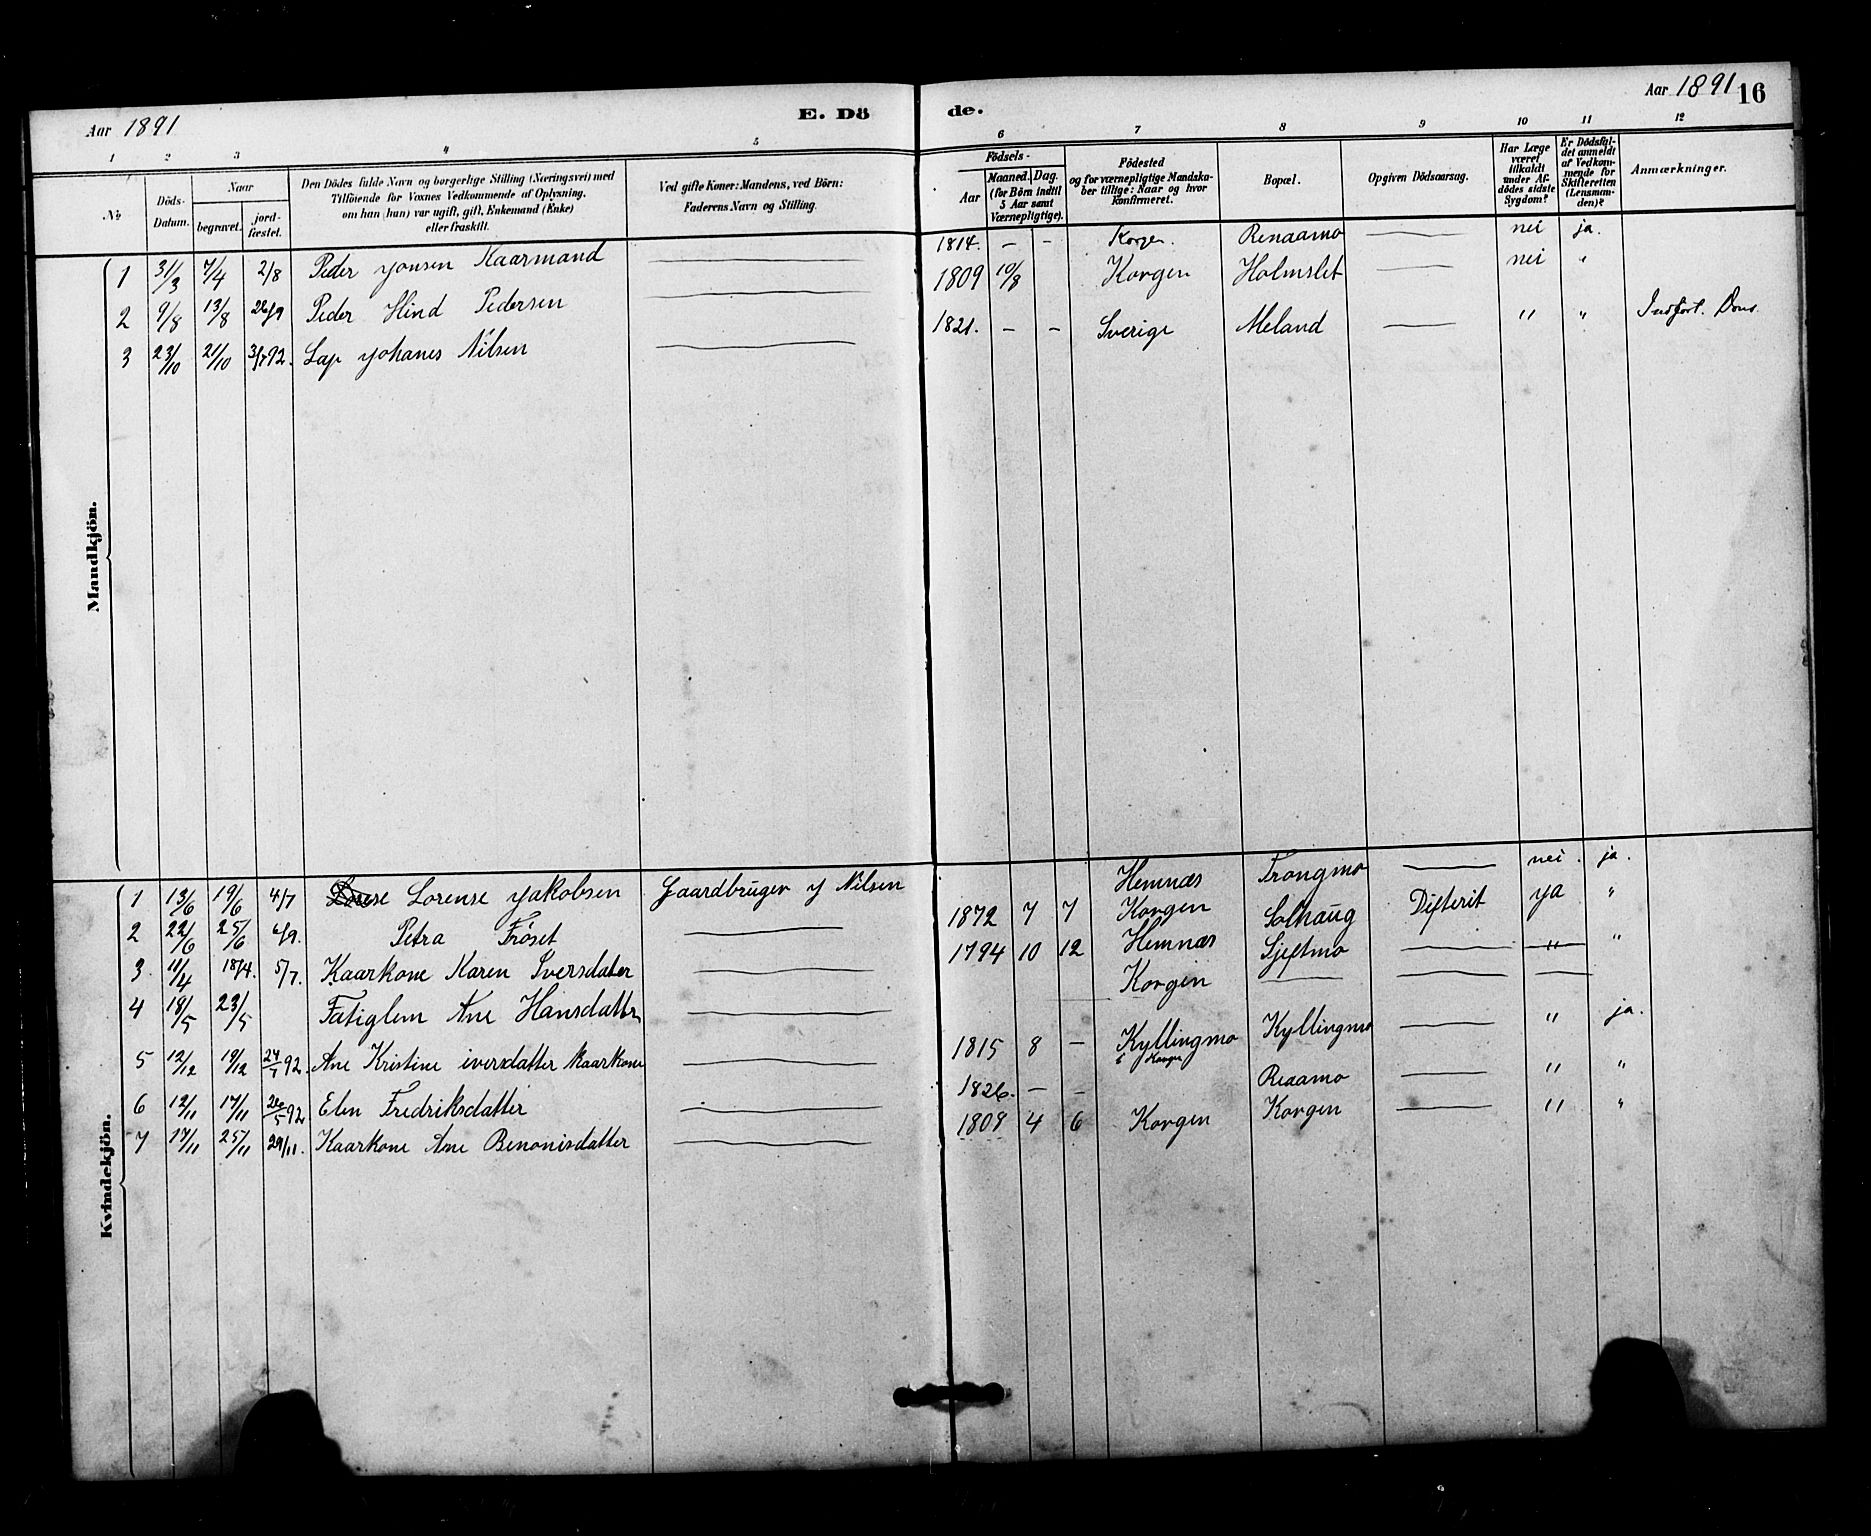 Aar 1891 E. Dö de. Aar 1891 16
1 2 3 4 5 6 7 8 9 10 11 12
No
Döds-Datum.
Naar
begravet.
jord-fæstet.
Den Dödes fulde Navn og borgerlige Stilling (Næringsvei) med
Tilföiende for Voxnes Vedkommende af Oplysning.
om han (hun) var ugift, gift, Enkemand (Enke)
eller fraskilt.
Ved gifte Koner: Mandens, ved Börn:
Faderens Navn og Stilling.
Födsels-
Aar
Maaned. Dag.
(for Börn indtil
5 Aar samt
Værnepligtige).
Födested
og for værnepligtige Mandska-
ber tillige: Naar og hvor
Konfirmeret.
Bopæl.
Opgiven Dödsaarsag.
Har Læge
været
tilkaldt
under Af-
dödes sidste
Sygdom?
Er Dödsfal-
det anmeldt
af Vedkom-
mende for
Skifteretten
(Lensman-
den)?
Anmærkninger.
Mandkjön.
1 31/3 7/4 2/8 Peder Jonsen Kaarmand 1814. — - Korgen. Renaamo nei ja.
2 9/8 13/8 26/9 Peder Hind Pedersen 1809 10/8 Korgen Holmslet nei "
3 23/10 21/10 3/7 92. Lap Johanes Nilsen 1821. — - Sverige Meland " "
Kvindekjön.
1 13/6 19/6 4/7 Lorense Jakobsen Gaardbruger J Nilsen Hemnæs Trongmo nei. ja.
2 22/6 25/6 6/9. Petra Frøset 1872 7 7 Korgen Solhaug Difterit ja "
3. 11/4 18/4. 5/7. Kaarkone Karen Iversdater 1794 10 12 Hemnæs Sjeftmo " "
4 18/5 23/5 Fatiglem Ane Hansdatter Korgen
5 12/12 19/12 24/7 92. Ane Kristine iversdatter Kaarkone 1815 8 — Kyllingmo Korgen Kyllingmo " ja.
6 12/11 17/11 26/5 92 Elen Fredriksdatter 1826. — - Reaamo " "
7 17/11 25/11 29/11. Kaarkone Ane Benonisdatter 1809 4 6 Korgen Korgen " "